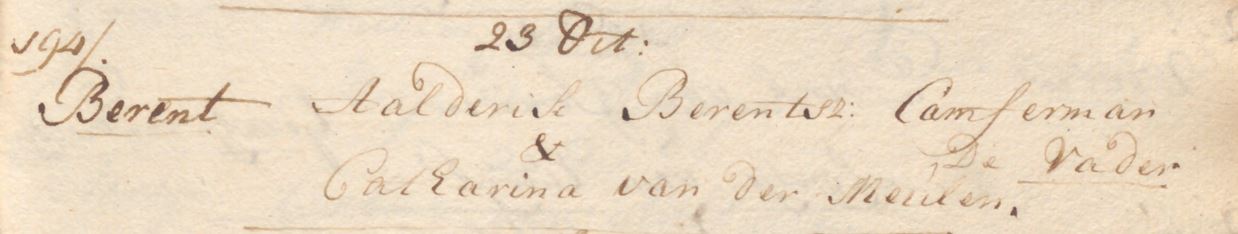 194/.
23 Dit:
Berent Aalderik Berentsz: Camferman
&
De Vader
Catharina van der Meulen.